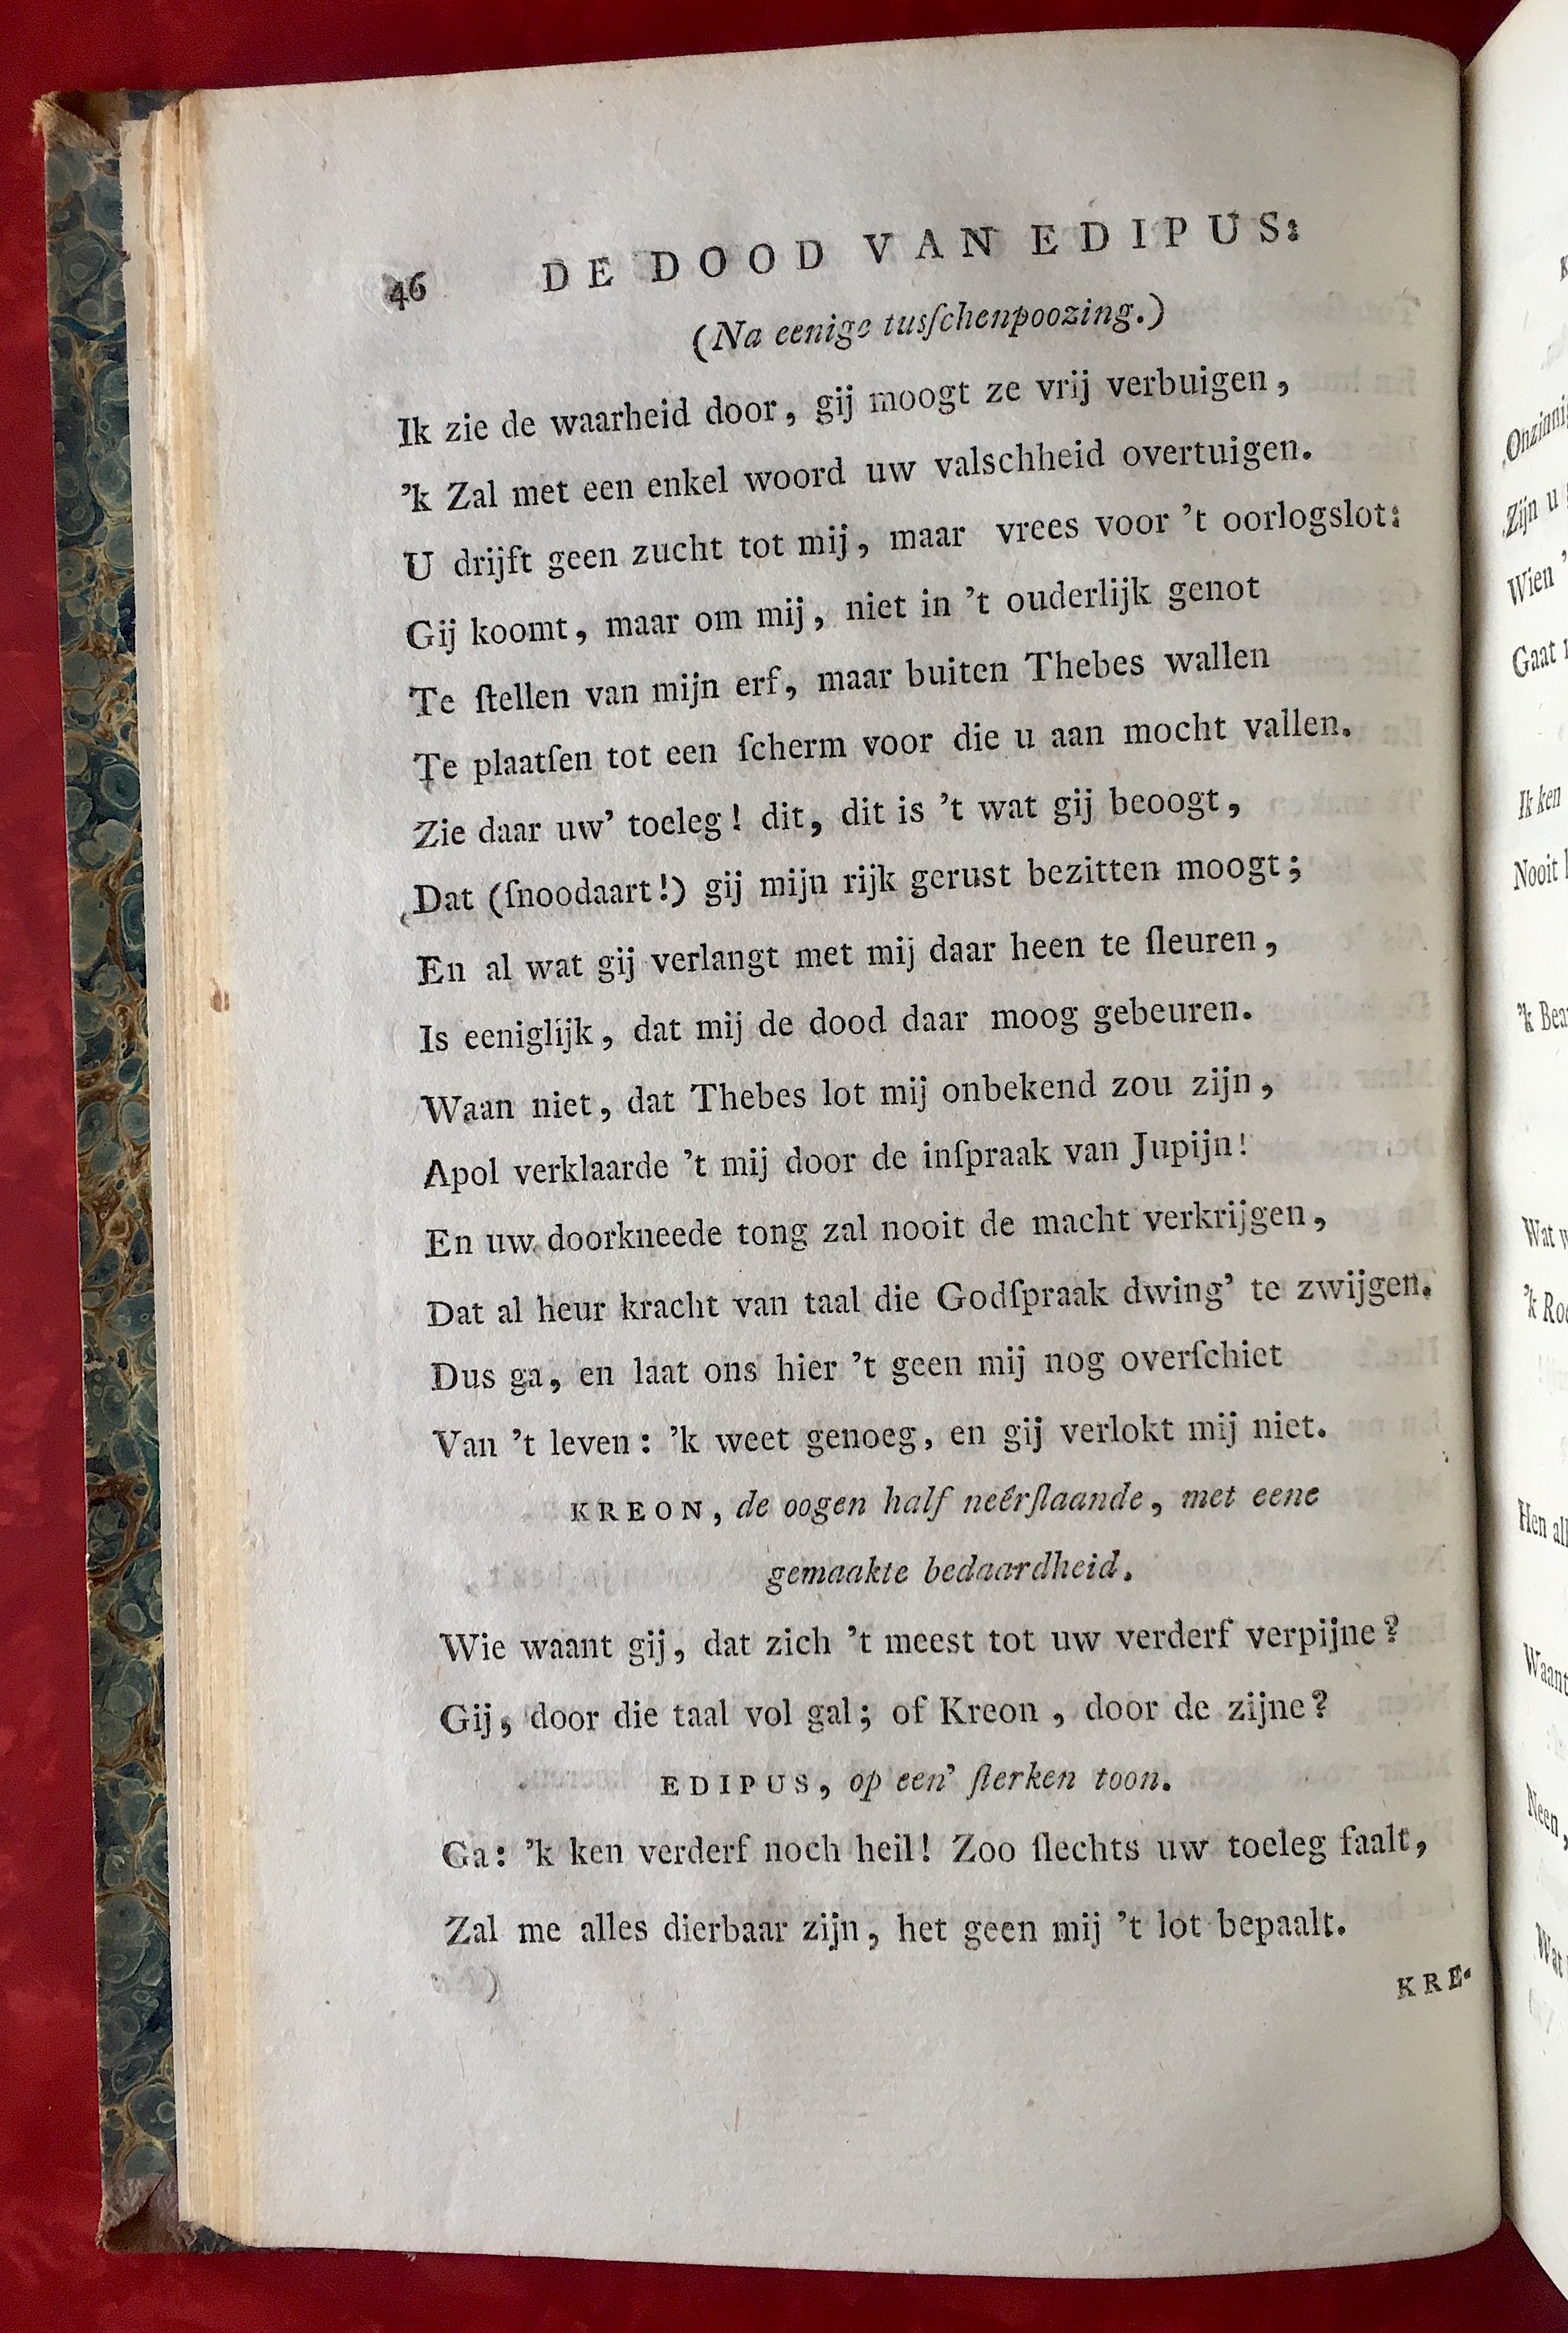 46 DE DOOD VAN EDIPUS:
(Na eenige tusſchenpoozing.)
Ik zie de waarheid door, gij moogt ze vrij verbuigen,
’k Zal met een enkel woord uw valschheid overtuigen.
U drijft geen zucht tot mij, maar vrees voor ’t oorlogslot:
Gij koomt, maar om mij, niet in ’t ouderlijk genot
Te ſtellen van mijn erf, maar buiten Thebes wallen
Te plaatſen tot een ſcherm voor die u aan mocht vallen.
Zie daar uw’ toeleg! dit, dit is ’t wat gij beoogt,
Dat (ſnoodaart!) gij mijn rijk gerust bezitten moogt;
En al wat gij verlangt met mij daar heen te ſleuren,
Is eeniglijk, dat mij de dood daar moog gebeuren.
Waan niet, dat Thebes lot mij onbekend zou zijn,
Apol verklaarde ’t mij door de inſpraak van Jupijn!
En uw doorkneede tong zal nooit de macht verkrijgen,
Dat al heur kracht van taal die Godſpraak dwing’ te zwijgen.
Dus ga, en laat ons hier ’t geen mij nog overſchiet
Van ’t leven: ’k weet genoeg, en gij verlokt mij niet.
KREON, de oogen half neêrſlaande, met eene
gemaakte bedaardheid.
Wie waant gij, dat zich ’t meest tot uw verderf verpijne?
Gij, door die taal vol gal; of Kreon, door de zijne?
EDIPUS, op een’ ſterken toon.
Ga: ’k ken verderf noch heil! Zoo ſlechts uw toeleg faalt,
Zal me alles dierbaar zijn, het geen mij ’t lot bepaalt.
KRE-
Zijn u
Wien ’
Gaat
Ik ken
Nooit
’k
Wat
’k
Hen
Neen,
Wat